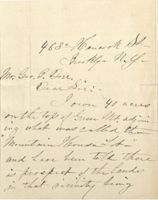 463 Hancock St
Brooklyn N.Y.
Mr. Geo. B. Dorr,
Dear Sir:-
I own 40 acres
on the top of Green Mt. adjoin
ing what was called the
"Mountain House Lot"
and have been told there
is prospect of the lands
in that vicinity being